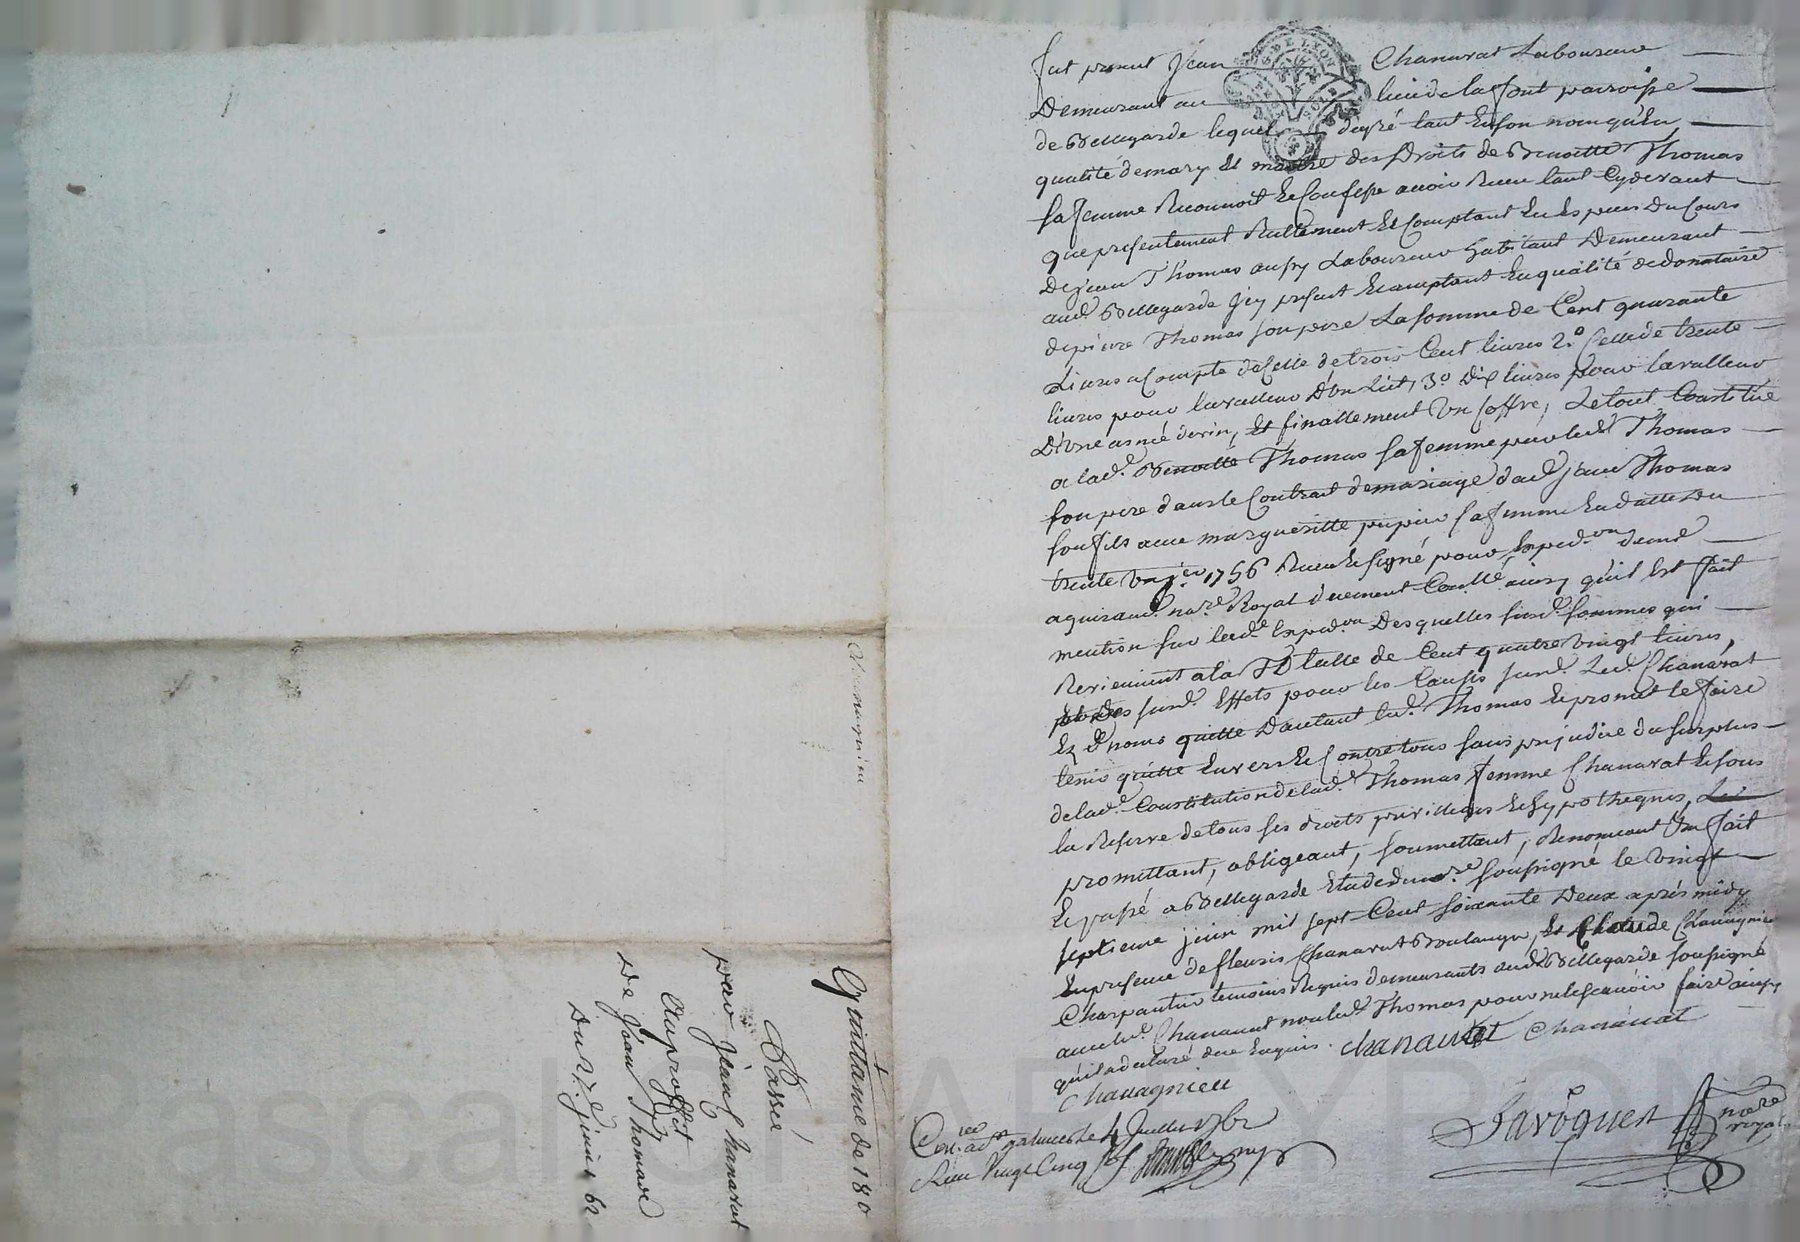 fut present Jean Chanarat Laboureur
Demeurant au lieu de la font parroisse
de Bellegarde lequel de gré tant En son nom qu'En
qualité de mary et maitre des Droits de Benoitte Thomas
sa femme Reconnoit et Confesse avoir Reçeu tant Cydevant
que presentement Reellement et Comptant En Especes Du Cours
De Jean Thomas aussy Laboureur habitant Demeurant
aud. Bellegarde Icy present Et acceptant En qualité de donataire
de pierre Thomas son pere La somme de Cent quarante
Livres a Compte de Celle de trois Cent livres 2.º Celle de trente
livres pour la valleur D'un Lit, 3.º Dix livres pour la valleur
D'Une asnée de vin, Et finallement Un Coffre, Le tout Constitué
a lad.e Benoitte Thomas sa femme par led. Thomas
son pere dans le Contrat de mariage dud. Jean Thomas
son fils avec marguerite pupier sa femme En datte Du
trente Un j.er 1756 Receu et signé pour Exped.on
aguiraud no.re Royal düement Conllé ainsy qu'il Est fait
mention sur lad.e Exped.on Des quelles susd. sommes qui
Reviennent a la Totalle de Cent quatre vingt livres,
susd. Effets pour les Causes susd. Led. Chanarat
Ez d. noms quitte D'autant led. Thomas Et promet le faire
tenir quitte Envers Et Contre tous sans prejudice du surplus
de lad.e Constitution de lad.e Thomas femme Chanarat Et sous
la Reserve de tous ses droits privilleges Et hypotheques,
promettant, obligeant, soumettant, Renonceant &c fait
Et passé a Bellegarde Etude du no.re soussigné le vingt
septieme juin mil sept Cent soixante Deux après midy
En presence de fleuris Chanarat Boulanger, Et Claude Chavagnieu
Charpentier temoins Requis demeurants aud. Bellegarde soussignés
avec led. Chanarat non led. Thomas pour ne le sçavoir faire ainsy
qu'il a declaré de ce Enquis. chanarat Chanarat
Chavagnieu
Javogues no.re royal
Con.lé a S.t galmier Le 4 Juillet 1762
Receu Vingt Cinq sols
Chavagnieu
Quittance de 180
Passée
par Jean Chanarat
Au proffit
De Jean Thomas
Du 27.e Juin 62
Pascal CHAPEYRON